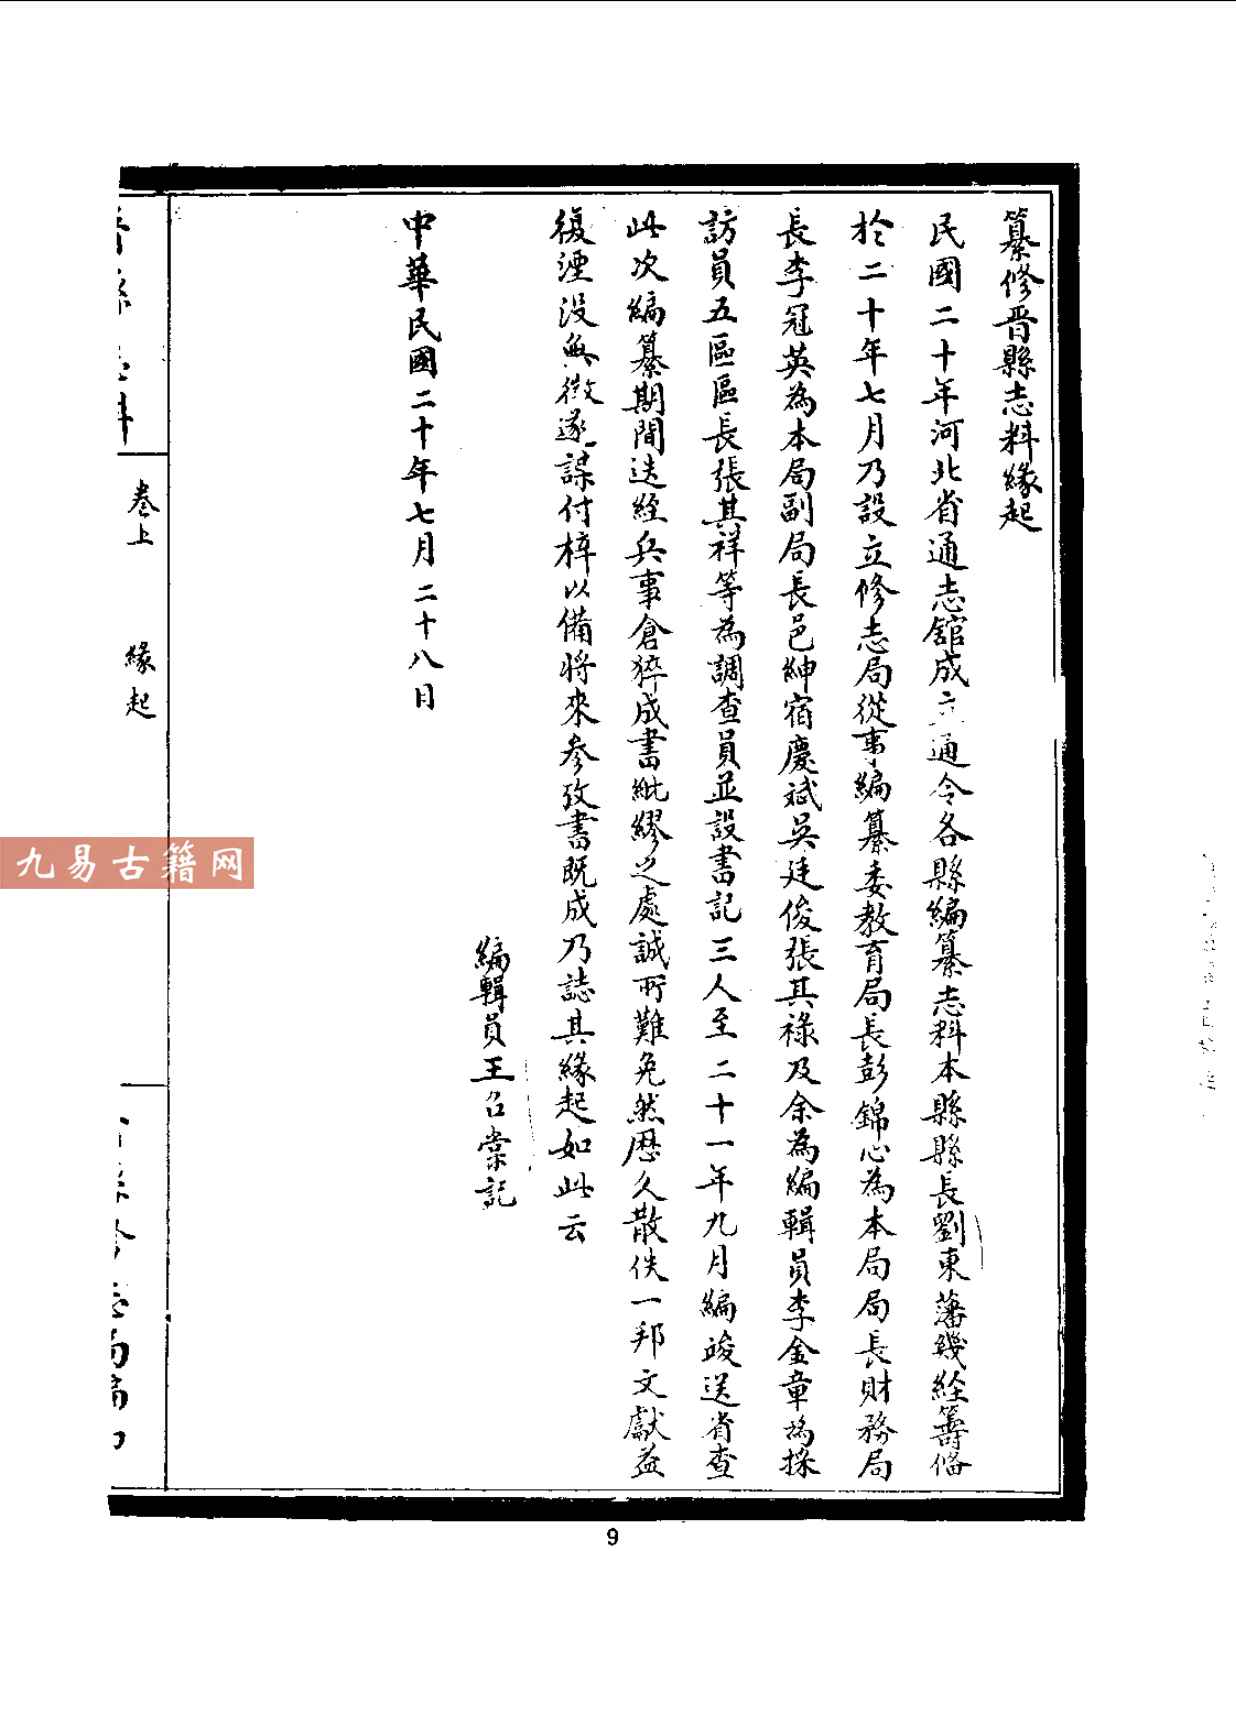 纂修晋縣志料緣起
民國二十年河北省通志舘成立通令各縣編纂志料本縣縣長劉東藩幾經籌俻
於二十年七月乃設立修志局從事編纂委教育局長彭錦心為本局局長財務局
長李冠英為本局副局長邑紳宿慶斌吳廷俊張其祿及余為編輯員李金章為採
訪員五區區長張其祥等為調查員並設書記三人至二十一年九月編竣送省查
此次編纂期間迭經兵事倉猝成書紕繆之處誠所難免然歷久散佚一邦文獻益
復湮没無徵遂謀付梓以備將來參攷書既成乃誌其緣起如此云
編輯員王召棠記
中華民國二十年七月二十八日
卷上
緣起
九易古籍网
9